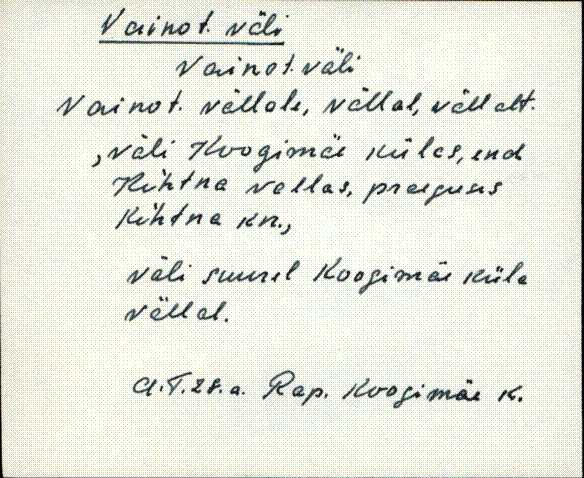 Vainot. väli
Vainot. väli
Vainot. vällale, vällal, vällalt.
, väli Koogimäe külas, end
Kehtna vallas, praeguses
Kehtna kn.,
väli suurel Koogimäe küla
vällal.
A.T.28.a. Rap. Koogimäe k.